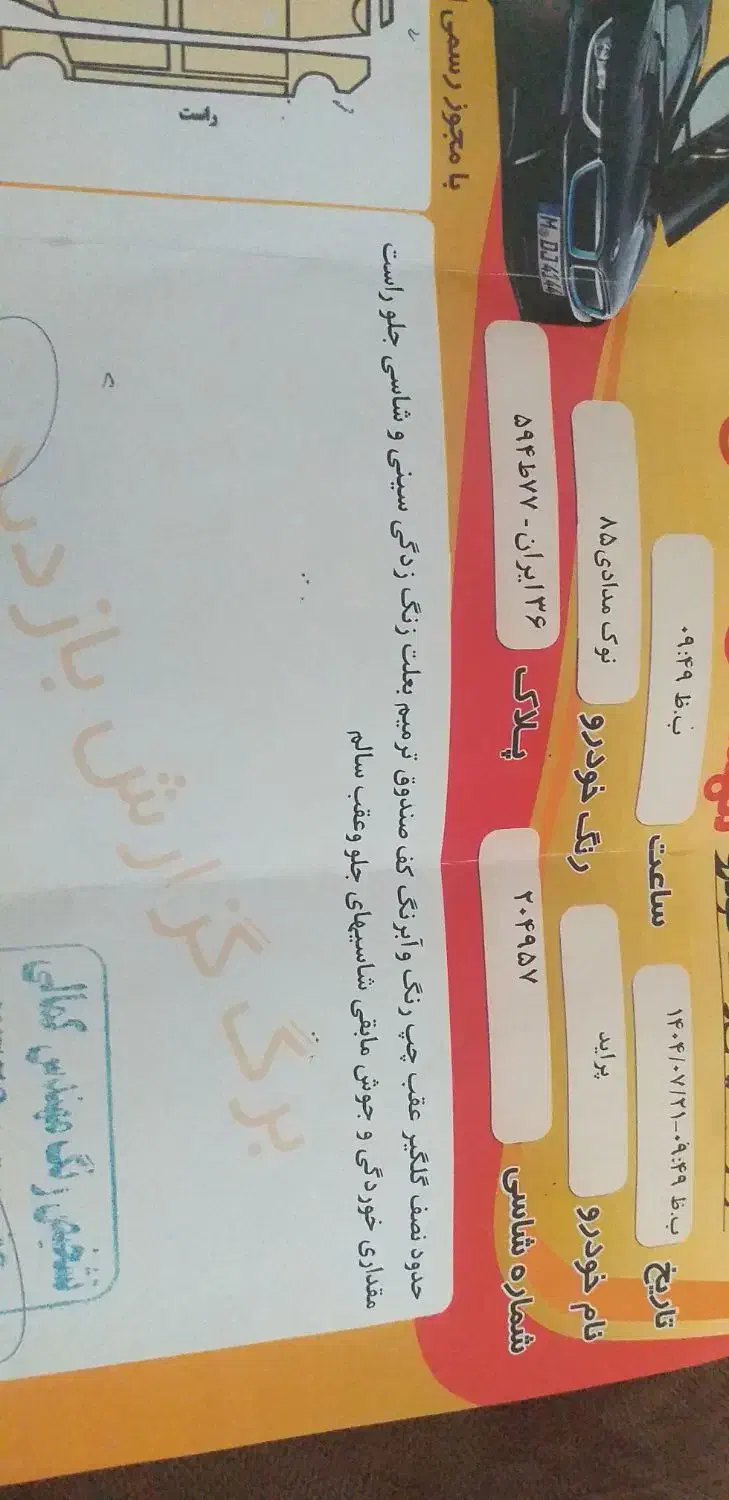 با مجوز رسمی
تاریخ ۱۴۰۴/۰۷/۲۱-۰۹:۴۹ ب.ظ
ساعت ۰۹:۴۹ ب.ظ
نام خودرو پراید
رنگ خودرو نوک مدادی ۸۵
شماره شاسی ۲۰۴۹۵۷
پلاک ۳۶ ایران - ۷۷ط۵۹۴
حدود نصف گلگیر عقب چپ رنگ و آبرنگ کف صندوق ترمیم بعلت زنگ زدگی سینی و شاسی جلو راست
مقداری خوردگی و جوش مابقی شاسیهای جلو وعقب سالم
برگ گزارش بازدید
راست
تشخیص رنگ مهندس کمالی